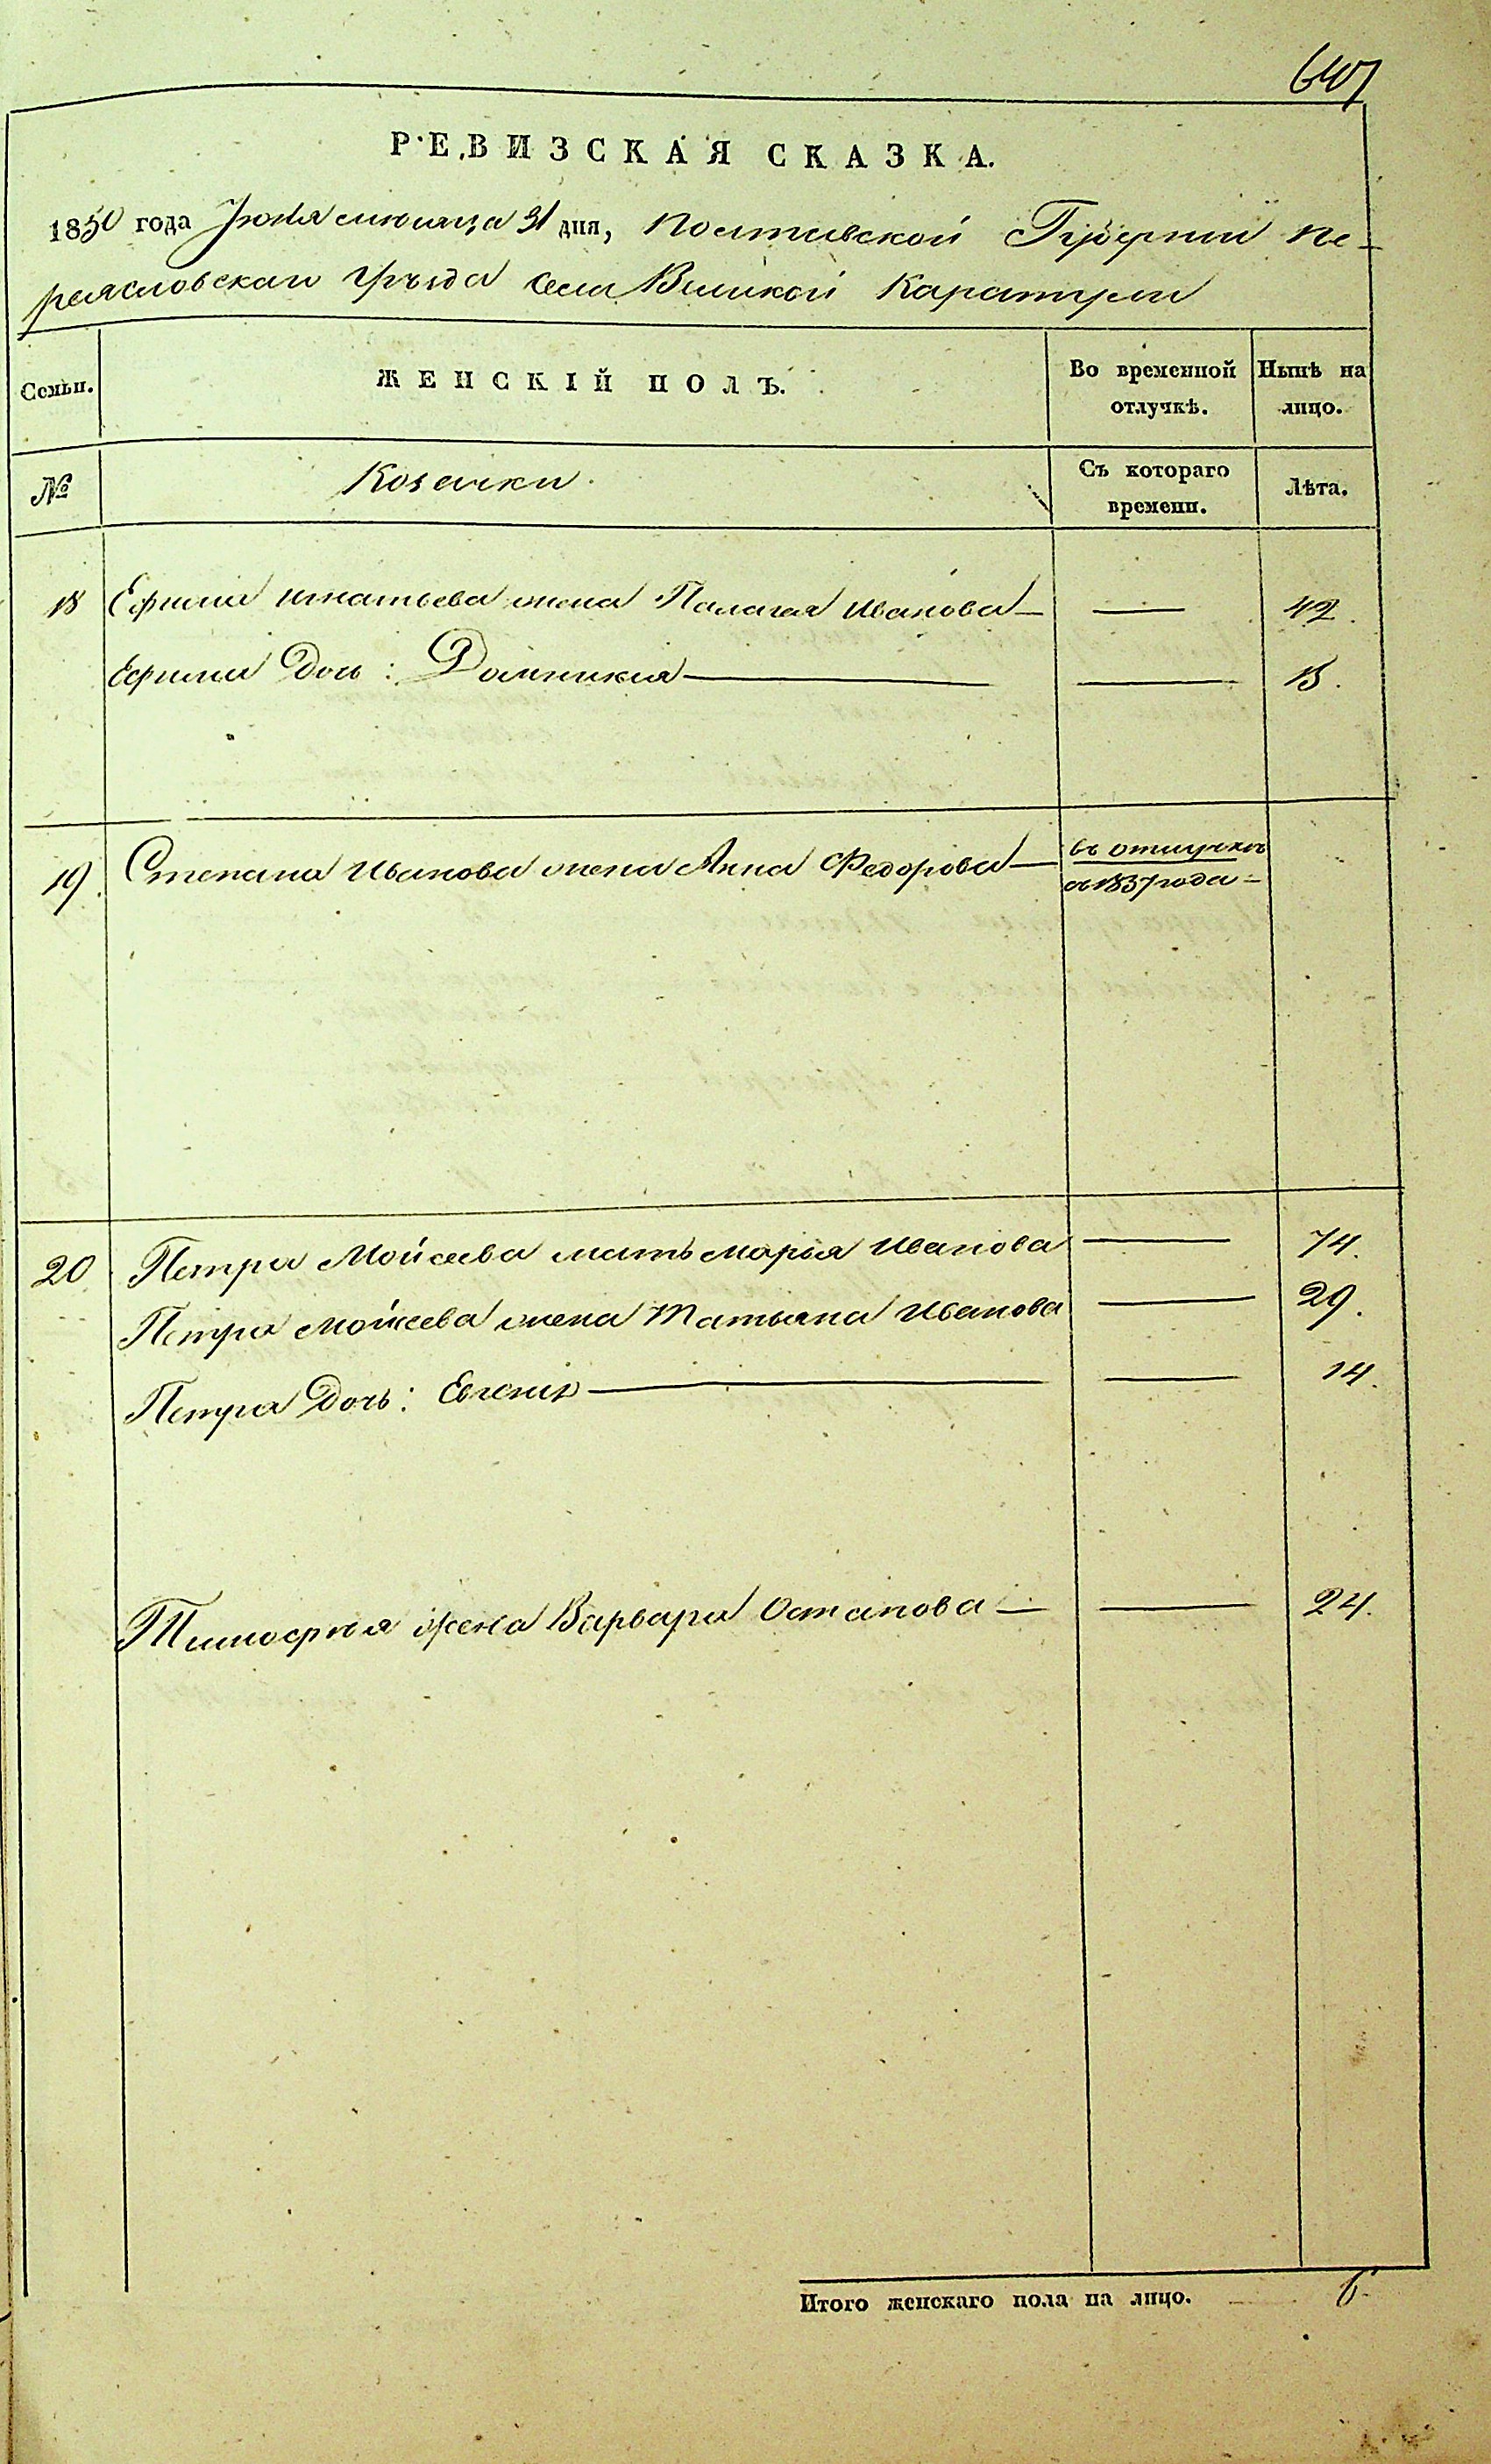 607
РЕВИЗСКАЯ СКАЗКА.
1850 года Июля мѣсяца 31 дня, Полтавской Губернии Пе-
реясловскаго Уѣзда села Великой Каратули
Семьи. ЖЕНСКІЙ ПОЛЪ. Во временной отлучкѣ. Нынѣ на лицо.
№ Козачки. Съ котораго времени. Лѣта.
18 Ефима Игнатьева жена Палагея Иванова — — 42.
Ефима Доч: Домникия — — 15.
19. Степана Иванова жена Анна Федорова — въ отлучкѣ
съ 1837 года —
20 Петра Мойсеева мать Марья Иванова — 74.
Петра Мойсеева жена Татьяна Иванова — 29.
Петра Дочь: Евгения — — 14.
Тимофѣя жена Варвара Остапова — — 24.
Итого женскаго пола на лицо. 6.